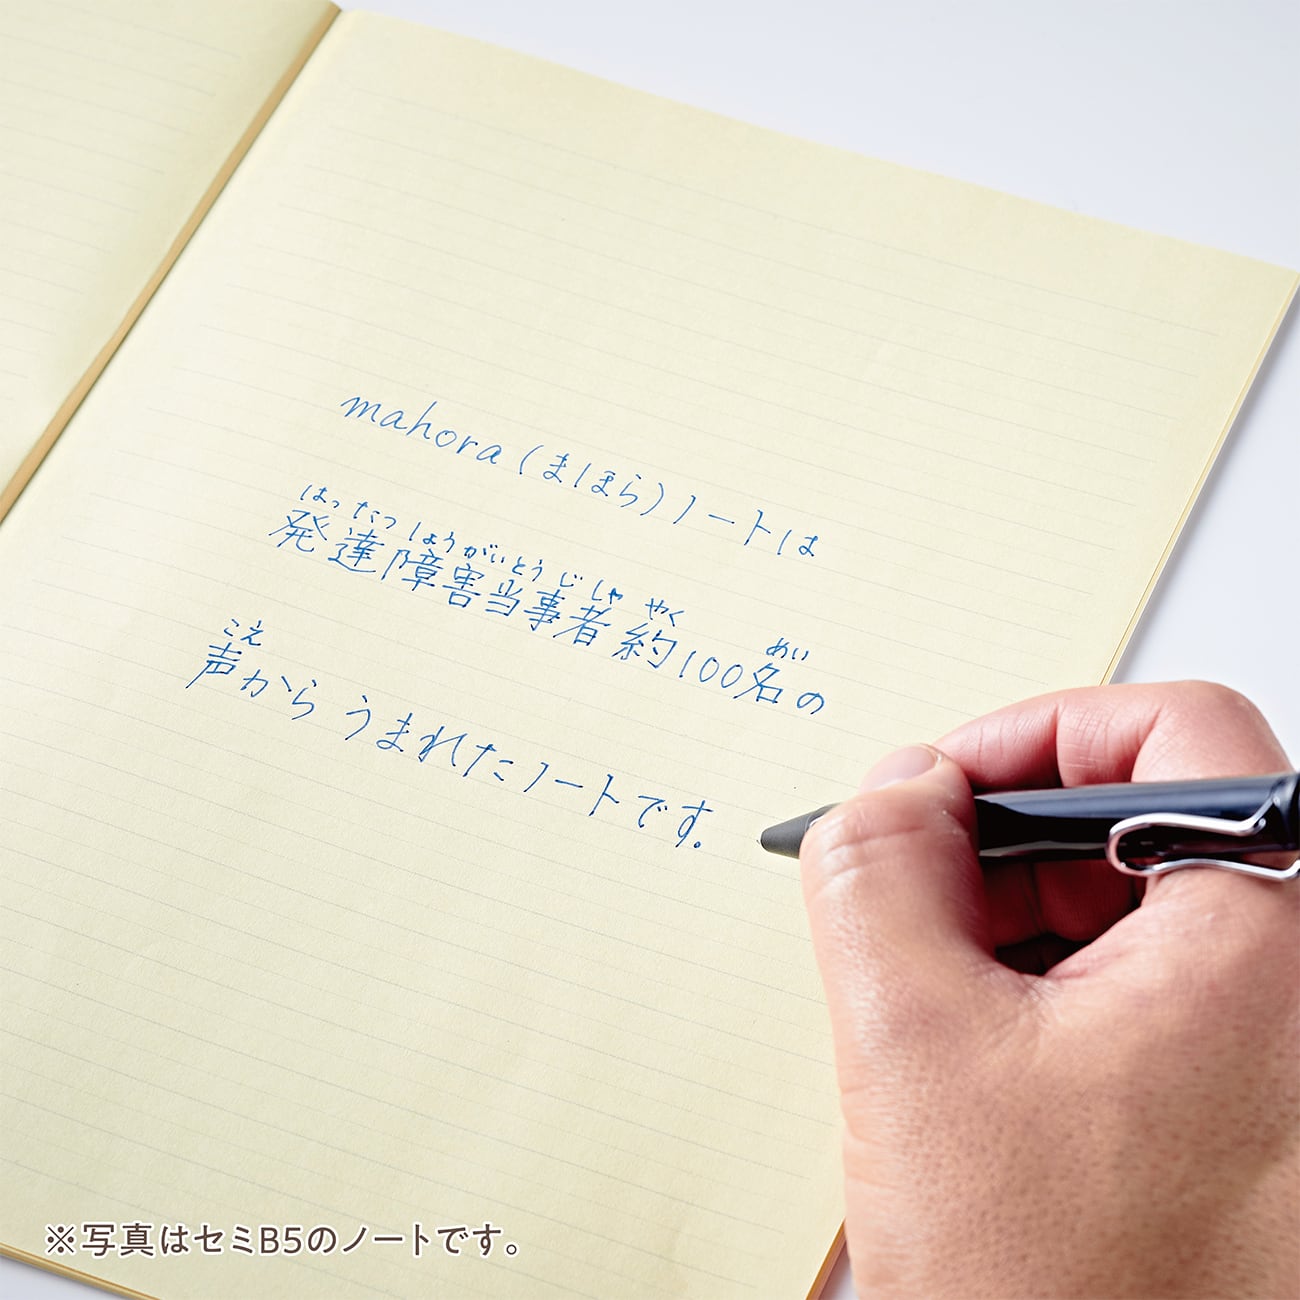 mahora(まほら)ノートは
はったつしょうがいとうじしゃ やく めい
発達障害当事者約100名の
こえ
声からうまれたノートです。
※写真はセミB5のノートです。